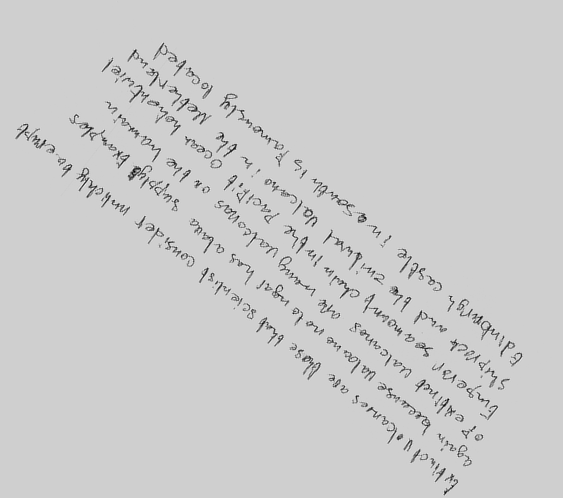 Extinct volcanoes are those that scientist consider unlikely to erupt
again because valcano no longal has a lava supply Examples
of extinct valcanes are many valcanos on the hawaiin
Emperar seamount chain in the pacifit Ocean hohentwiel
shiprock and the zuidwal valcano in the Netherland
Edinburgh castle in is famously located